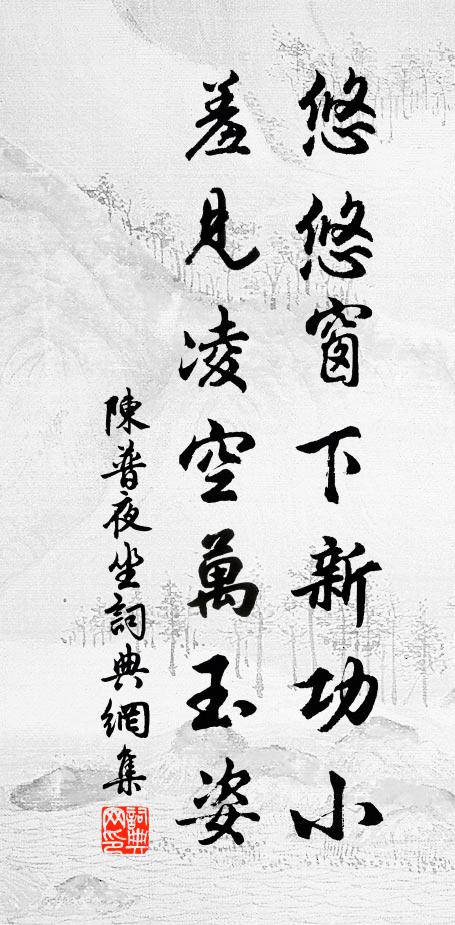 悠悠窗下新功小
羞見凌空萬玉姿
陳普夜坐詞典網集
詞典网印